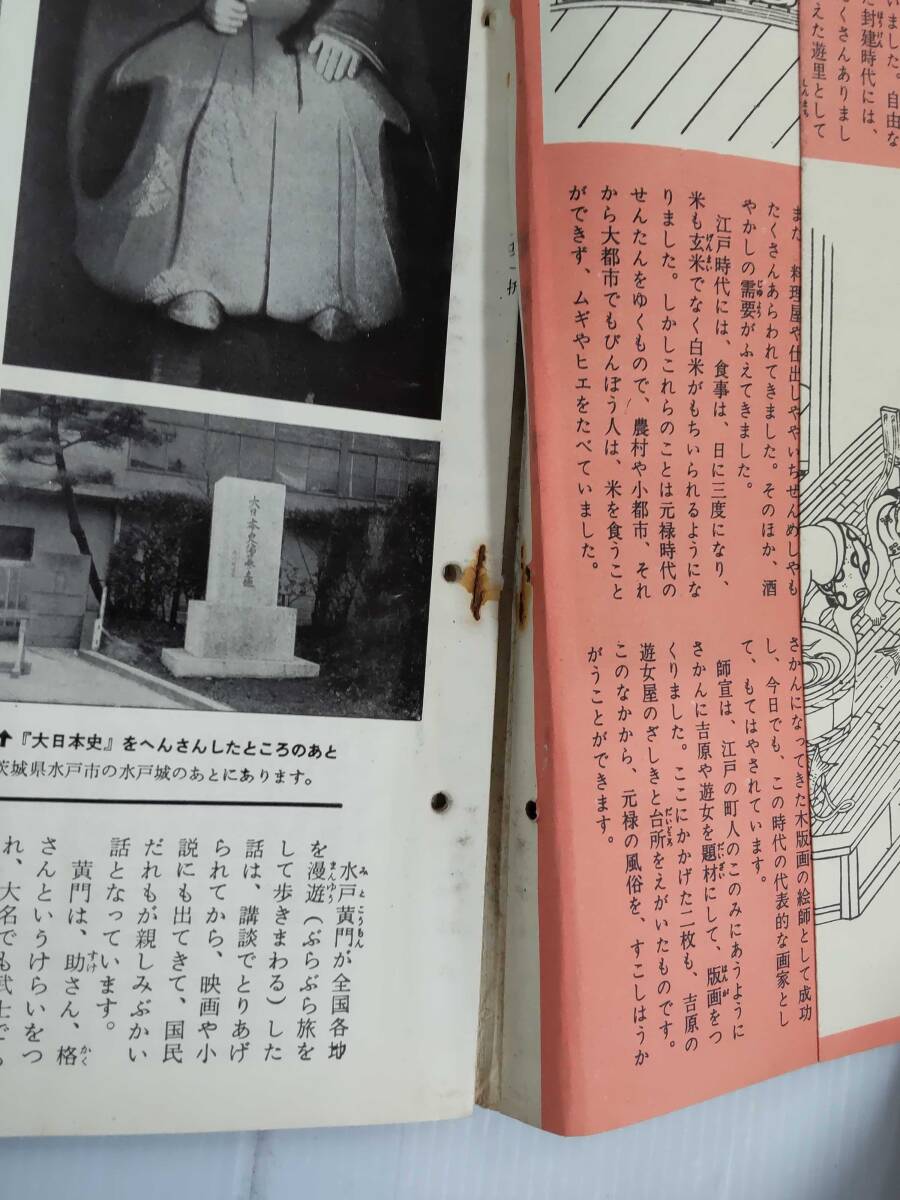 いました。自由な
た封建時代には、
くさんありまし
えた遊里として
また、料理屋や仕出しややいちぜんめしやも
たくさんあらわれてきました。そのほか、酒
やかしの需要がふえてきました。
江戸時代には、食事は、日に三度になり、
米も玄米でなく白米がもちいられるようにな
りました。しかしこれらのことは元禄時代の
せんたんをゆくもので、農村や小都市、それ
から大都市でもびんぼう人は、米を食うこと
ができず、ムギやヒエをたべていました。
さかんになってきた木版画の絵師として成功
し、今日でも、この時代の代表的な画家とし
て、もてはやされています。
師宣は、江戸の町人のこのみにあうように
さかんに吉原や遊女を題材にして、版画をつ
くりました。ここにかかげた二枚も、吉原の
遊女屋のざしきと台所をえがいたものです。
このなかから、元禄の風俗を、すこしはうか
がうことができます。
↑『大日本史』をへんさんしたところのあと
茨城県水戸市の水戸城のあとにあります。
水戸黄門が全国各地
を漫遊（ぶらぶら旅を
して歩きまわる）した
話は、講談でとりあげ
られてから、映画や小
説にも出てきて、国民
だれもが親しみぶかい
話となっています。
黄門は、助さん、格
さんというけらいをつ
れ、大名でも武士でも